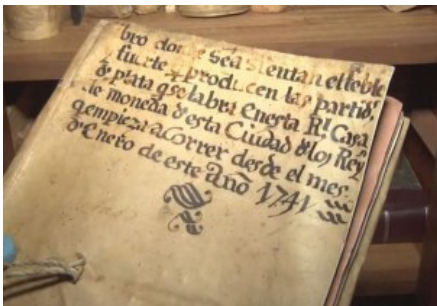 bro donde se asientan el feble
fuerte q producen las partids.
de plata q se labra en esta Rl. Casa
de moneda d'esta Ciudad d'los Reys
q empieza a correr desde el mes
d'Enero de este Año 1741